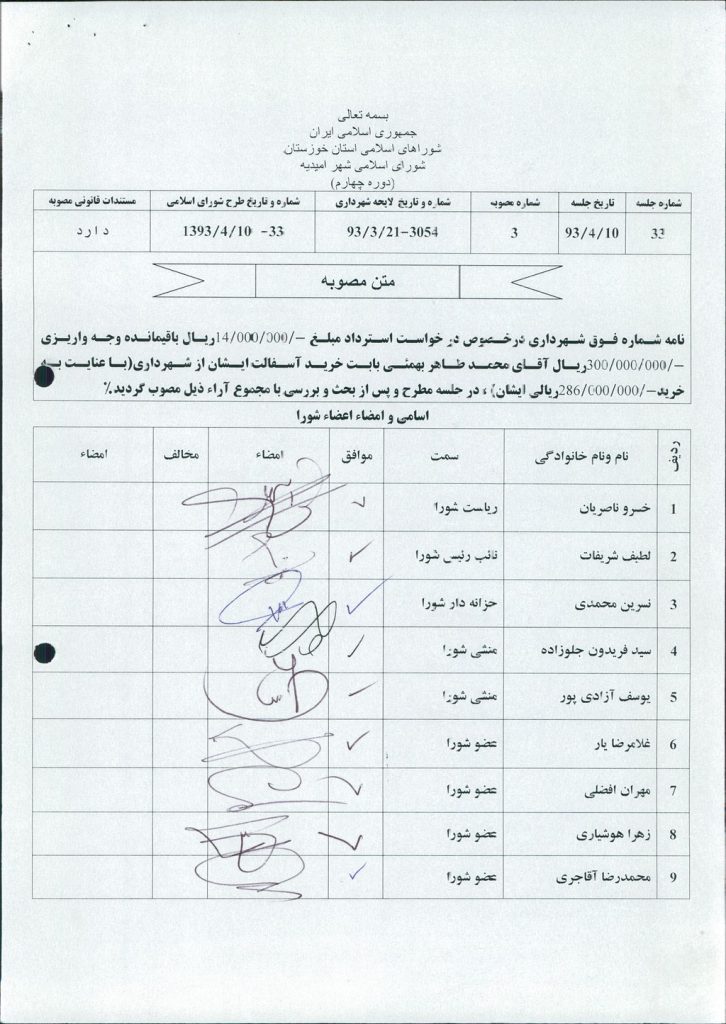 بسمه تعالی
جمهوری اسلامی ایران
شوراهای اسلامی استان خوزستان
شورای اسلامی شهر امیدیه
(دوره چهارم)
شماره جلسه تاریخ جلسه شماره مصوبه شماره و تاریخ لایحه شهرداری شماره و تاریخ طرح شورای اسلامی مستندات قانونی مصوبه
33 93/4/10 3 93/3/21-3054 1393/4/10 -33 دارد
متن مصوبه
نامه شماره فوق شهرداری درخصوص در خواست استرداد مبلغ -/14/000/000ریال باقیمانده وجه واریزی
-/300/000/000ریال آقای محمد طاهر بهمئی بابت خرید آسفالت ایشان از شهرداری(با عنایت به
خرید-/286/000/000ریالی ایشان) ، در جلسه مطرح و پس از بحث و بررسی با مجموع آراء ذیل مصوب گردید.٪
اسامی و امضاء اعضاء شورا
ردیف نام ونام خانوادگی سمت موافق امضاء مخالف امضاء
1 خسرو ناصریان ریاست شورا
2 لطیف شریفات نائب رئیس شورا
3 نسرین محمدی خزانه دار شورا
4 سید فریدون جلوزاده منشی شورا
5 یوسف آزادی پور منشی شورا
6 غلامرضا یار عضو شورا
7 مهران افضلی عضو شورا
8 زهرا هوشیاری عضو شورا
9 محمدرضا آقاجری عضو شورا